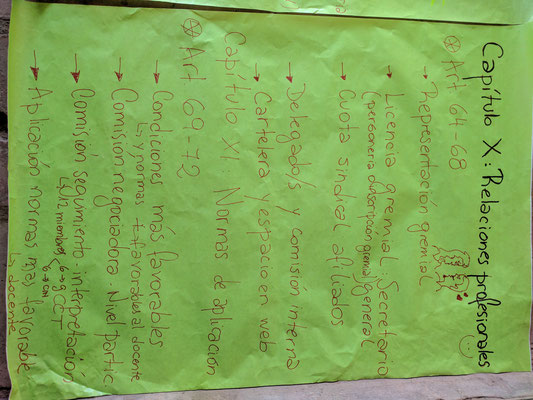 Capítulo X: Relaciones profesionales
⊛ Art 64-68
→ Representación gremial
→ Licencia gremial: Secretario general
(personería o inscripción gremial)
→ Cuota sindical afiliados
→ Delegada/s y comisión interna
→ Cartelera y espacio en web
Capítulo XI Normas de aplicación
⊛ Art 69-72
→ Condiciones más favorables
↳ y normas + favorables al docente
→ Comisión negociadora. Nivel partic
→ Comisión seguimiento. interpretación
↳ 12 miembros 6→ CCT
6→
→ Aplicación normas más favorable
↳ docente